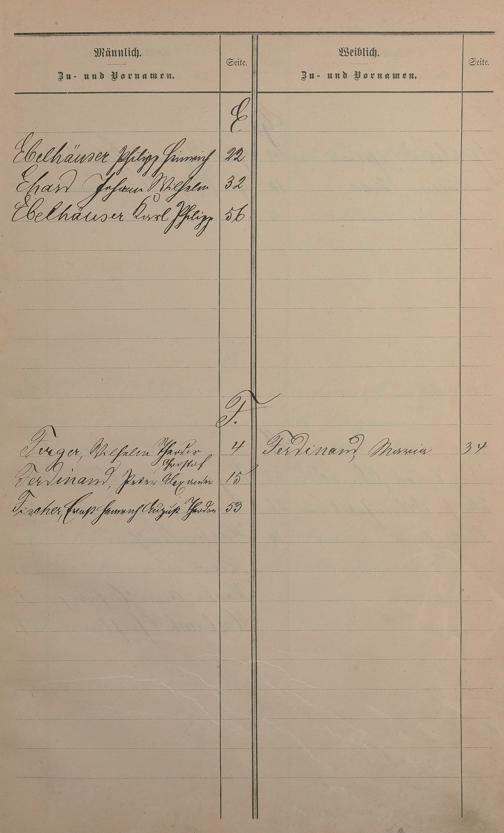 Männlich.
Zu- und Vornamen.
Seite.
Weiblich.
Zu- und Vornamen.
Seite.
E
Ebelhäuser Philipp Heinrich 22
Ehard Johann Wilhelm 32
Ebelhäuser Karl Philipp 56
F.
Ferger, Wilhelm Theodor 4 Ferdinand, Maria 34
Ferdinand, Peter Alexander 15
Fischer, Ernst Heinrich August Theodor 53